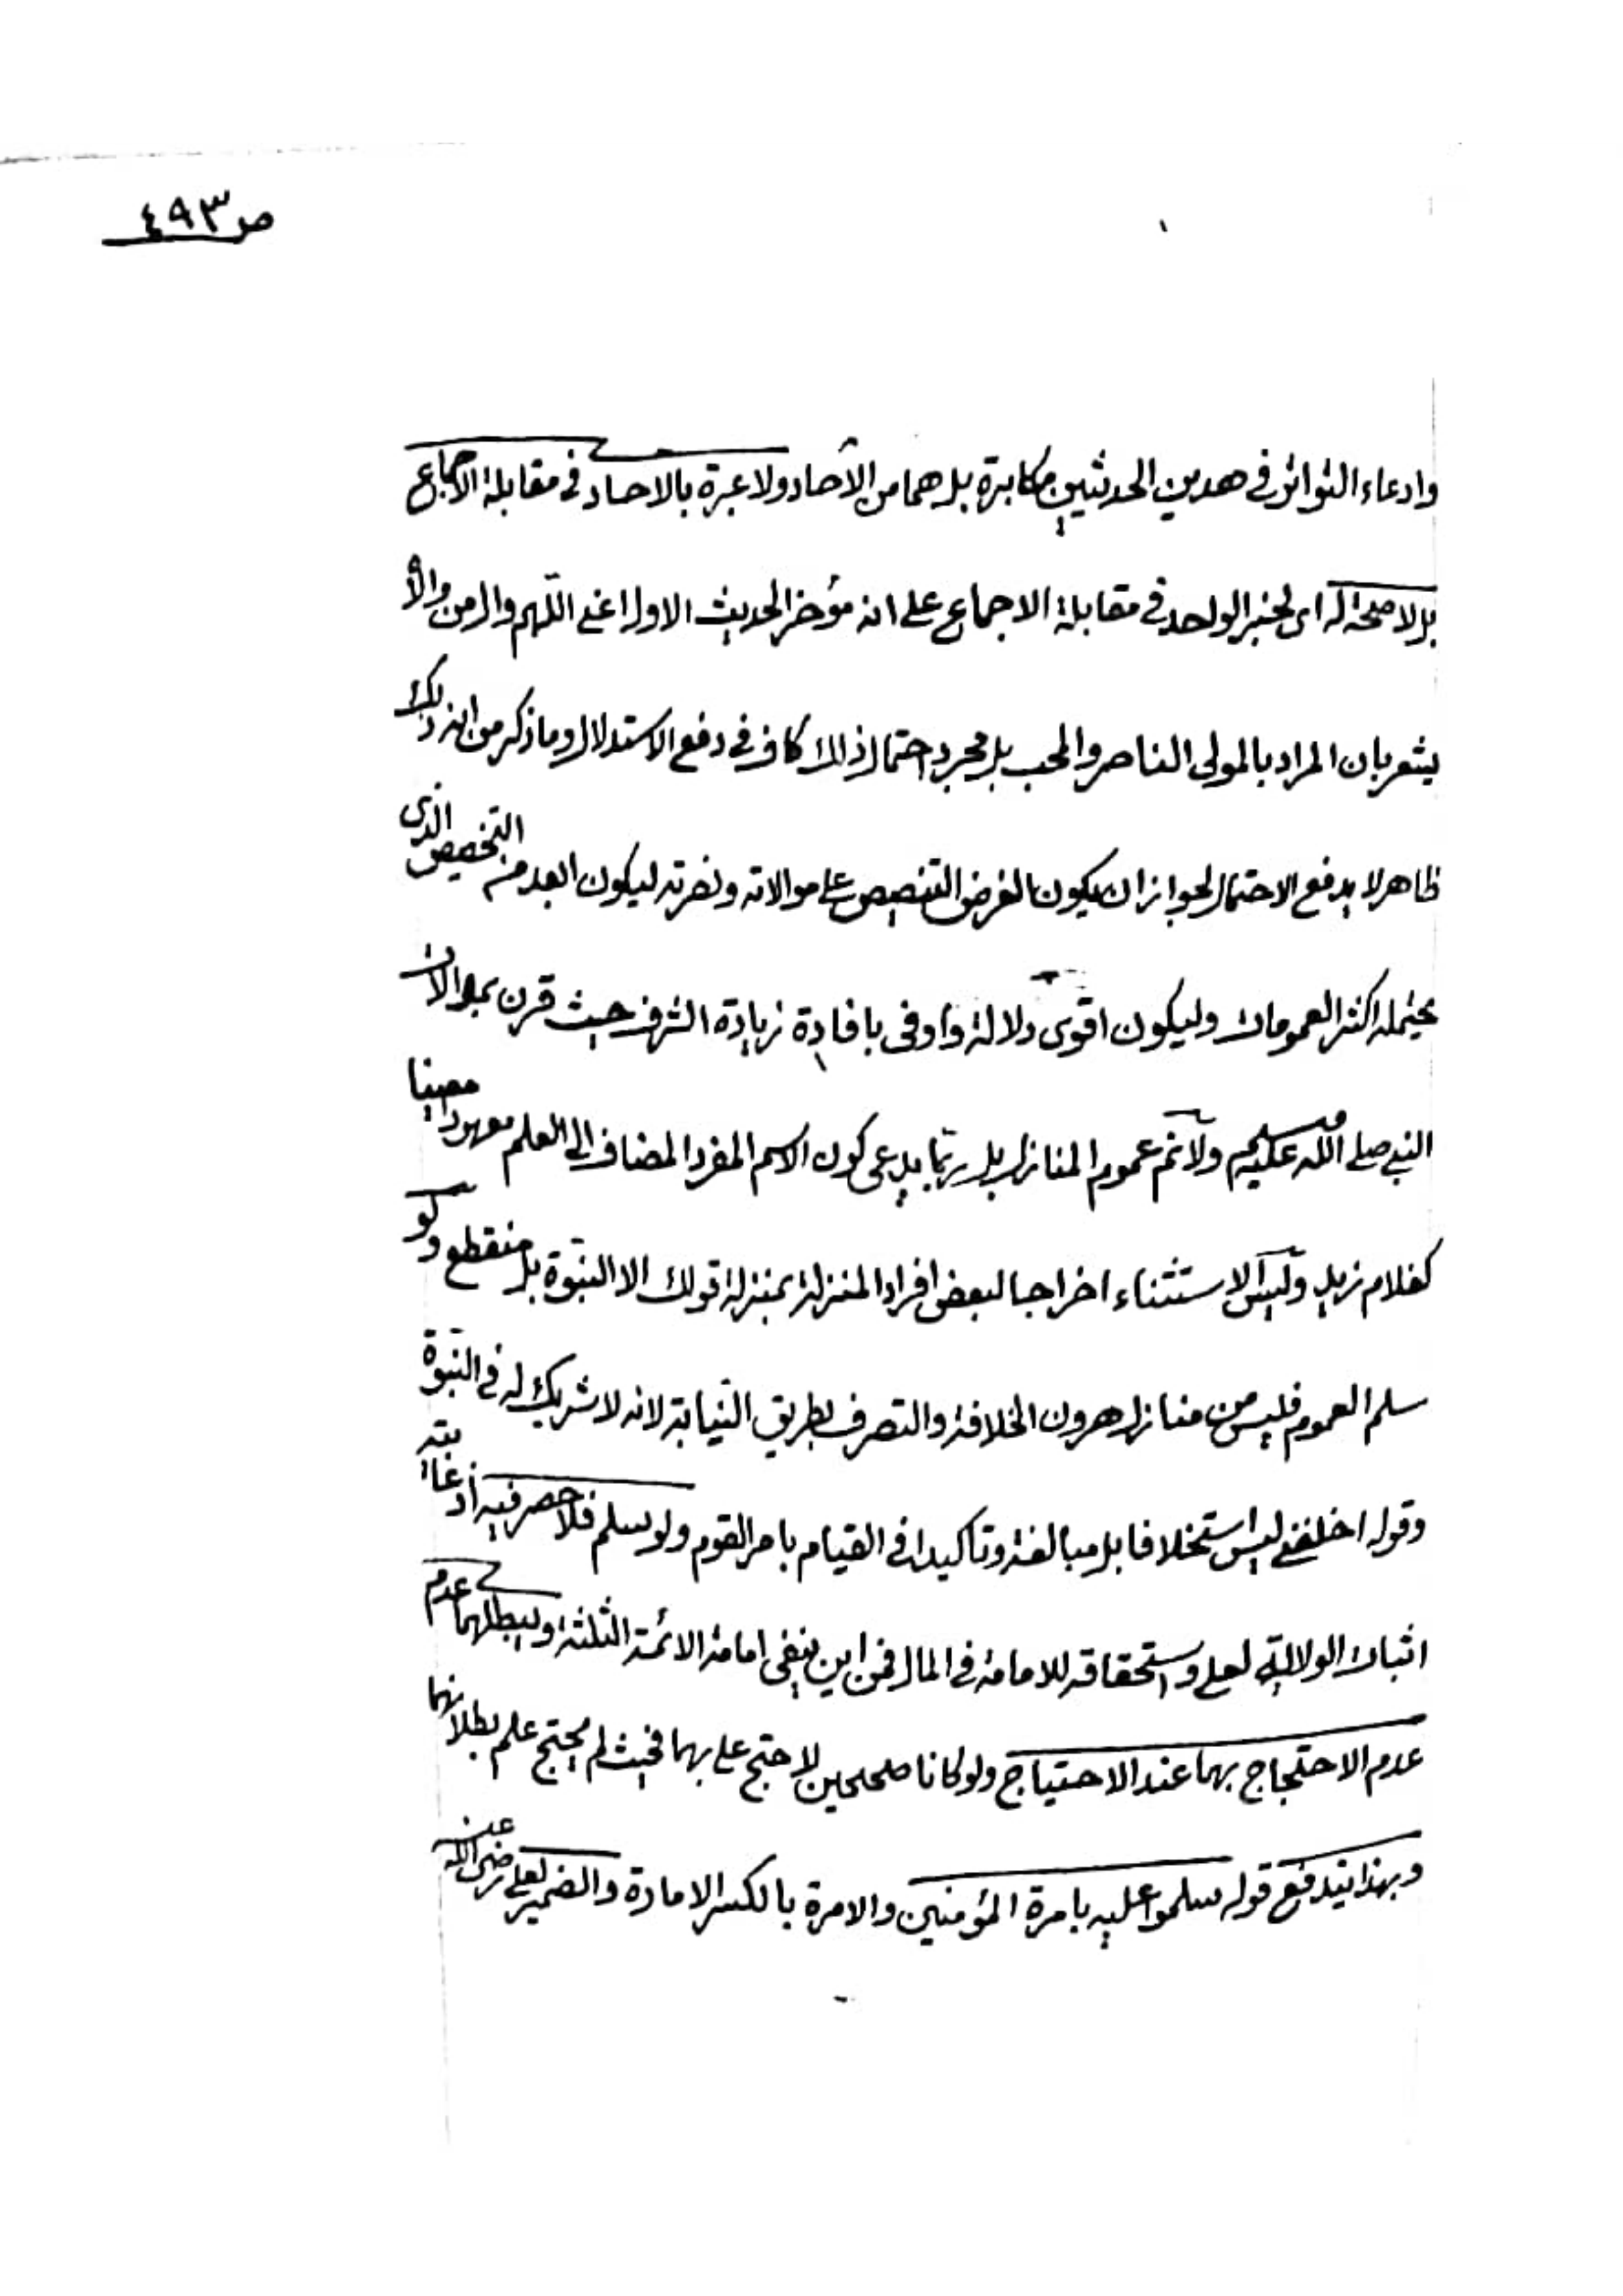 ص ٤٩٣
وادعاء التواتر في هذين الحديثين مكابرة بل هما من الآحاد ولا عبرة بالاحاد في مقابلة الاجماع
بل لا صحة له اى لخبر الواحد في مقابلة الاجماع على انه مؤخر الحديث الاول اعني اللّهم وال من والاه
يشعر بان المراد بالمولى الناصر والمحب بل مجرد احتمال ذلك كاف في دفع الاستدلال وما ذكر من ان ذلك
ظاهر لا يدفع الاحتمال لجواز ان يكون الغرض التنصيص على موالاته ونصرته ليكون ابعد من التخصيص الذى
يحتمله اكثر العمومات وليكون اقوى دلالة واوفى بافادة زيادة الشرف حيث قرن بموالات
النبي صلى الله عليه وسلم ولا ثم عموم المنازل بل ربّما يدعى كون الاسم المفرد المضاف الى العلم معهودا معينا
كغلام زيد وليس الاستثناء اخراجا لبعض افراد المنزلة بمنزلة قولك الا النبوّة بل منقطع ولو
سلم العموم فليس من منازل هرون الخلافة والتصرف بطريق النّيابة لانه لا شريك له في النبوّة
وقوله اخلفني ليس استخلافا بل مبالغة وتاكيدا في القيام بامر القوم ولو سلم فلا حصر فيه اذ غايته
اثبات الولاية لعلي واستحقاقه للامامة في المال فمن اين ينفى امامة الائمة الثلثة ويبطلهما عدم
عدم الاحتجاج بهما عند الاحتياج ولو كانا صحيحين لاحتج علي بهما فحيث لم يحتج علم بطلانهما
وبهذا يندفع قوله سلموا عليه بامرة المؤمنين والامرة بالكسر الامارة والضمير لعلي رضى الله عنه